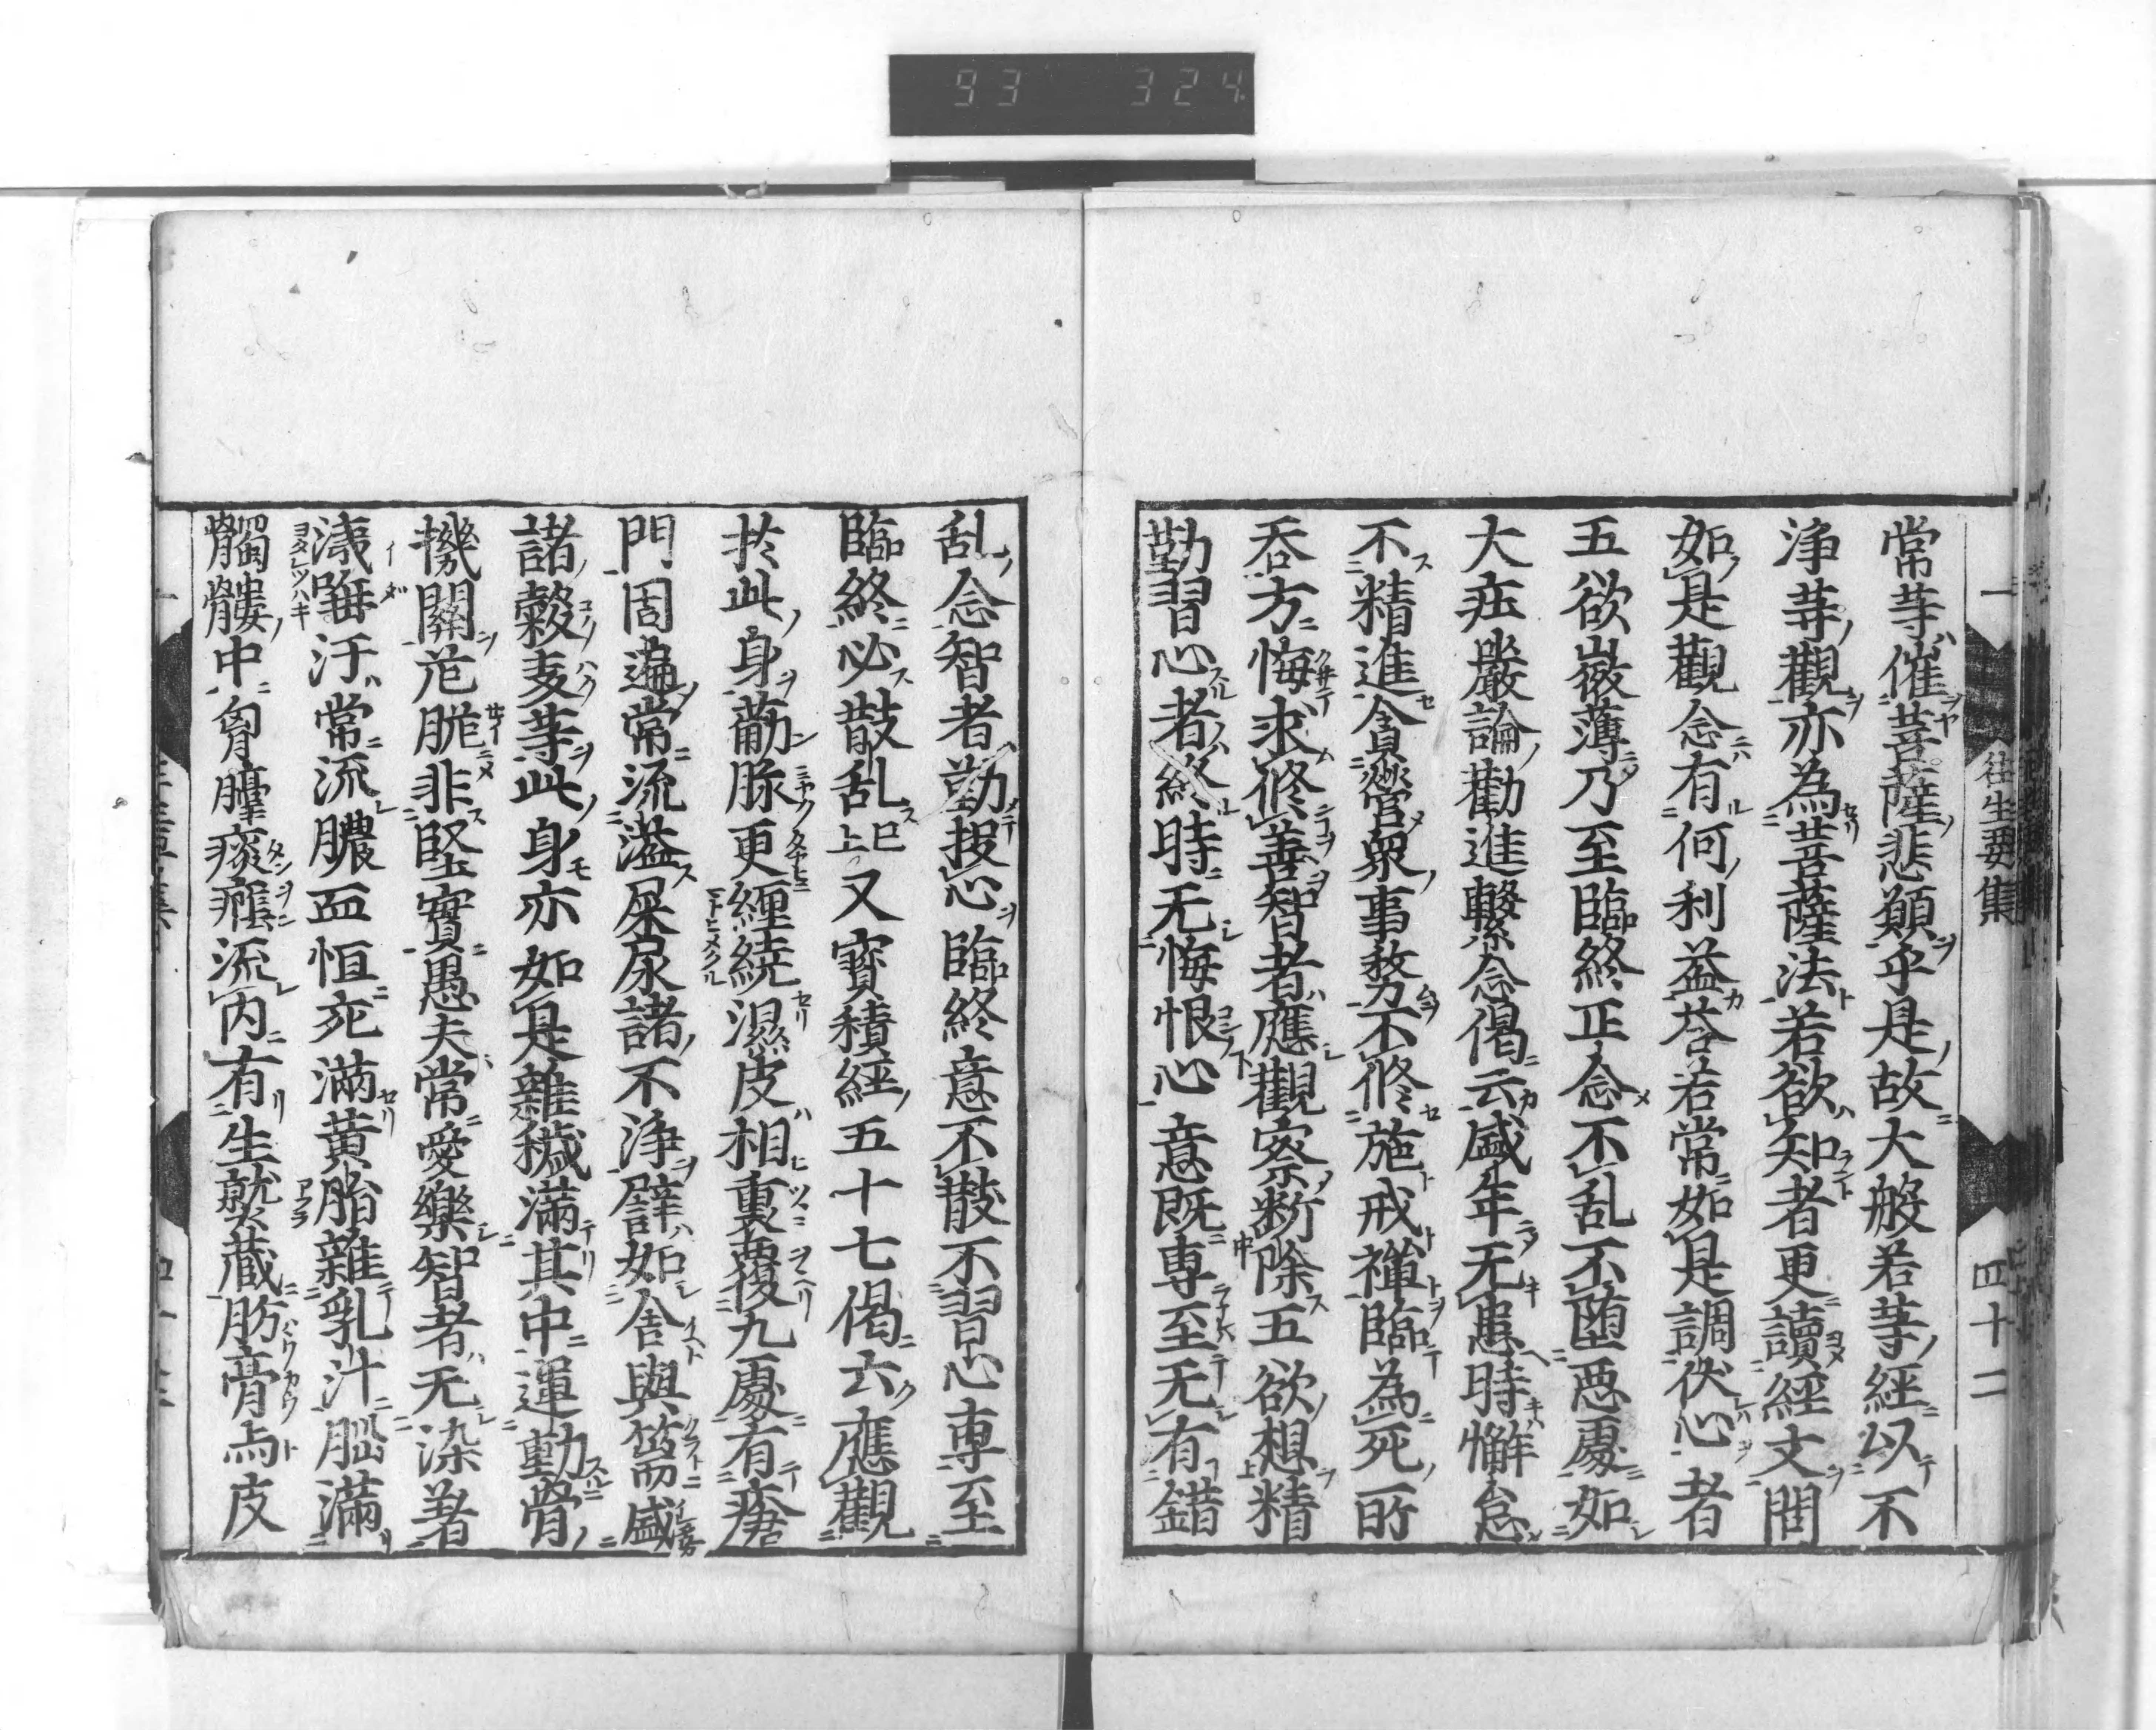 93 324
往生要集 四十二
常等催菩薩悲願乎是故大般若等經以不
淨等觀亦為菩薩法若欲知者更讀經文問
如是觀念有何利益荅若常如是調伏心者
五欲微薄乃至臨終正念不乱不堕悪處如
大庄嚴論勸進繋念偈云盛年无患時懈怠
不精進貪營衆事務不修施戒禅臨為死所
吞方悔求修善智者應觀察断除五欲想精
勤習心者終時无悔恨心意既專至无有錯
乱念智者勤投心臨終意不散不習心專至
臨終必散乱已上又寳積經五十七偈云應觀
於此身筋脉更纏繞濕皮相裹覆九處有瘡
門周遍常流溢屎尿諸不浄譬如舎與篅盛
諸穀麦等此身亦如是雜穢滿其中運動骨
機關危脆非堅實愚夫常愛樂智者无染著
洟唾汙常流膿血恒充滿黄脂雜乳汁腦滿
髑髏中胷膈痰癊流内有生熟藏肪膏與皮